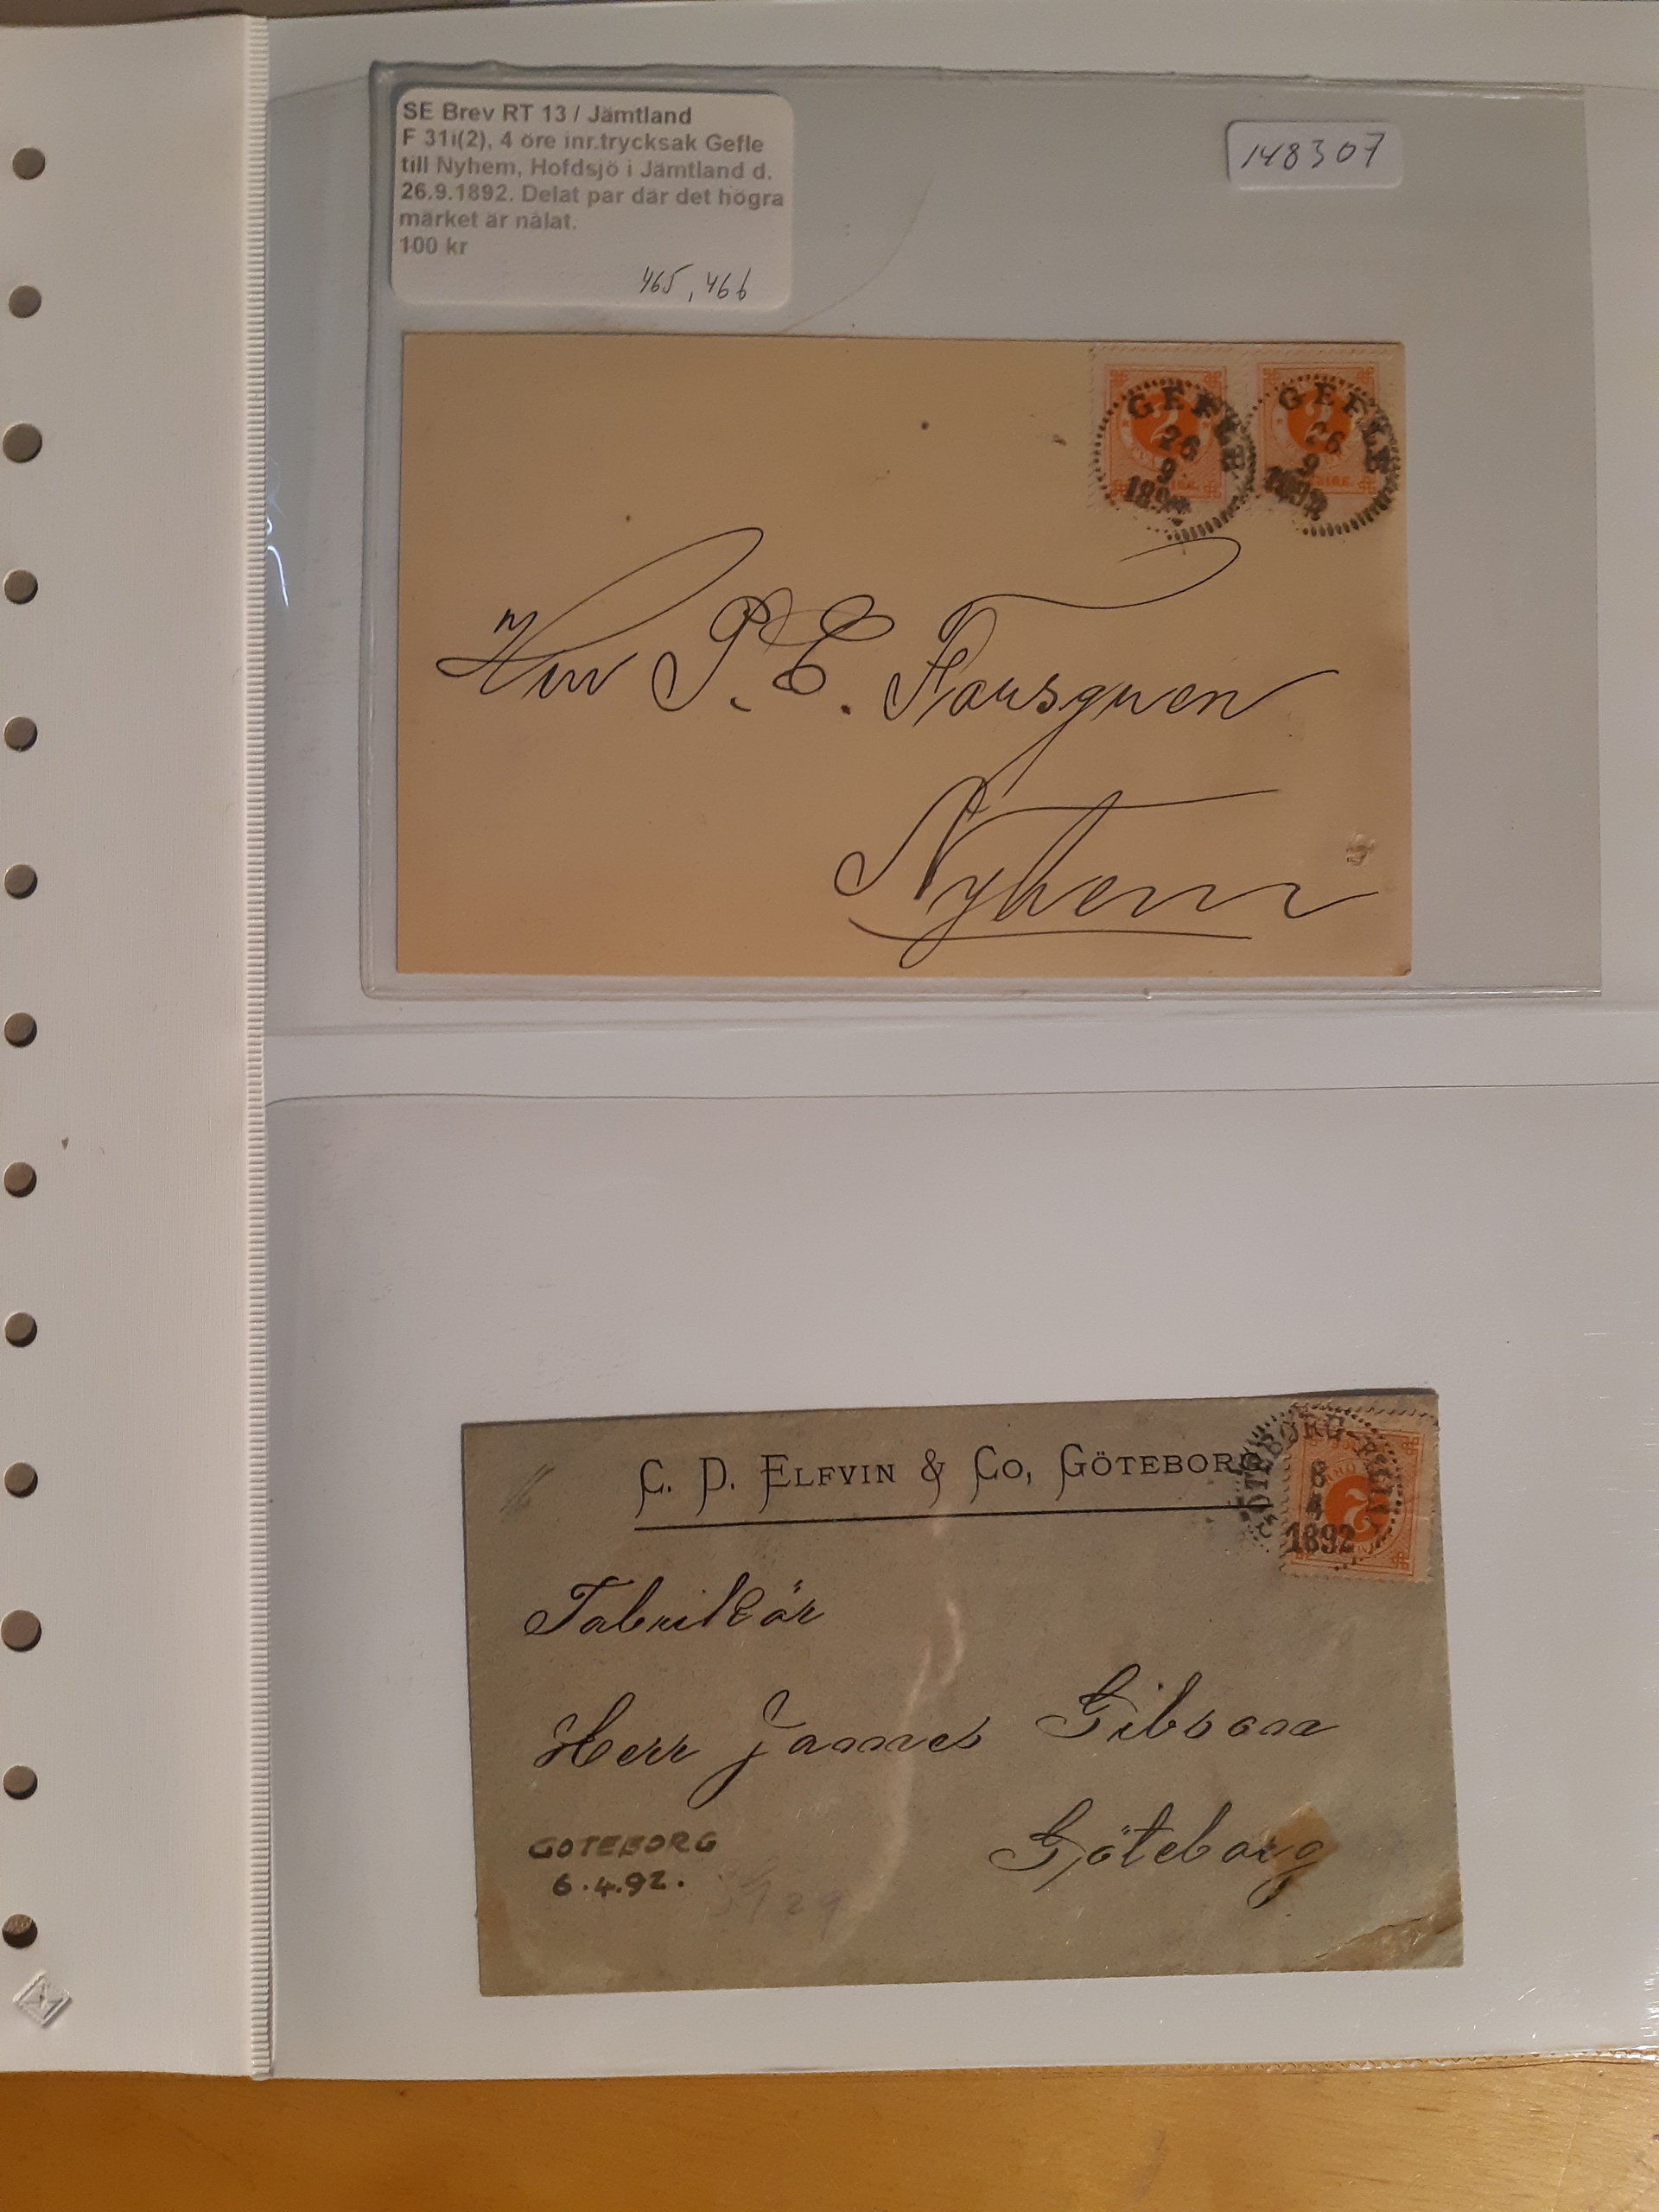 SE Brev RT 13 / Jämtland
F 31i(2), 4 öre inr.trycksak Gefle
till Nyhem, Hofdsjö i Jämtland d.
26.9.1892. Delat par där det högra
märket är nålat.
100 kr
465, 466
148307
GEFLE
26
9
1892
GEFLE
26
9
1892
2
2
Herr P. E. Forsgren
Nyhem
C. D. ELFVIN & CO, GÖTEBORG
GÖTEBORG
6
4
1892
2
Fabrikör
Herr James Gibson
Göteborg
GÖTEBORG
6.4.92.